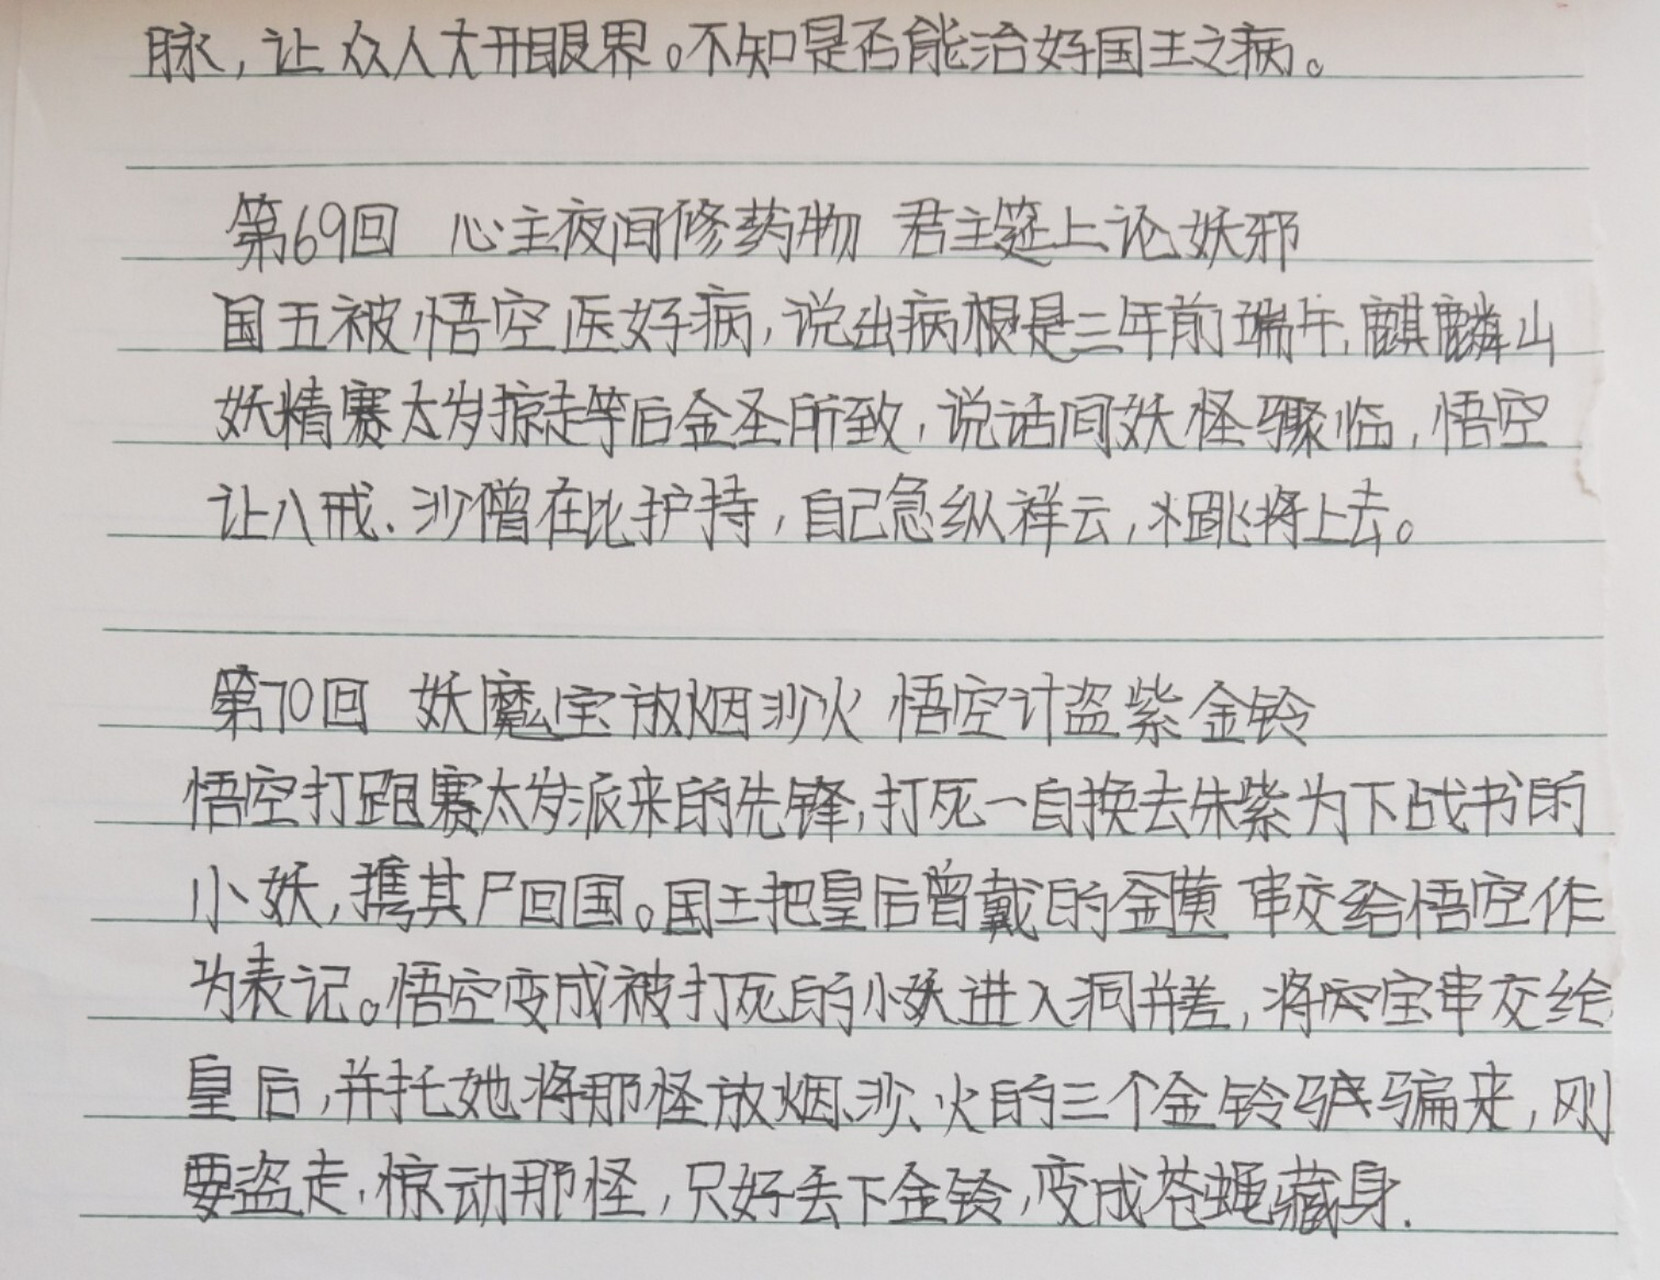 脉，让众人大开眼界。不知是否能治好国王之病。
第69回 心主夜间修药物 君主筵上论妖邪
国五被悟空医好病，说出病根是三年前端午，麒麟山
妖精赛太岁掠走等后金圣所致，说话间妖怪骤临，悟空
让八戒、沙僧在比护持，自己急纵祥云，跳将上去。
第70回 妖魔宝放烟沙火 悟空计盗紫金铃
悟空打跑赛太岁派来的先锋，打死一自换去朱紫为下战书的
小妖，携其尸回国。国王把皇后曾戴的金黄串交给悟空作
为表记。悟空变成被打死的小妖进入洞并差，将宝串交给
皇后，并托她将那怪放烟、沙、火的三个金铃骗来，刚
要盗走，惊动那怪，只好丢下金铃，变成苍蝇藏身.